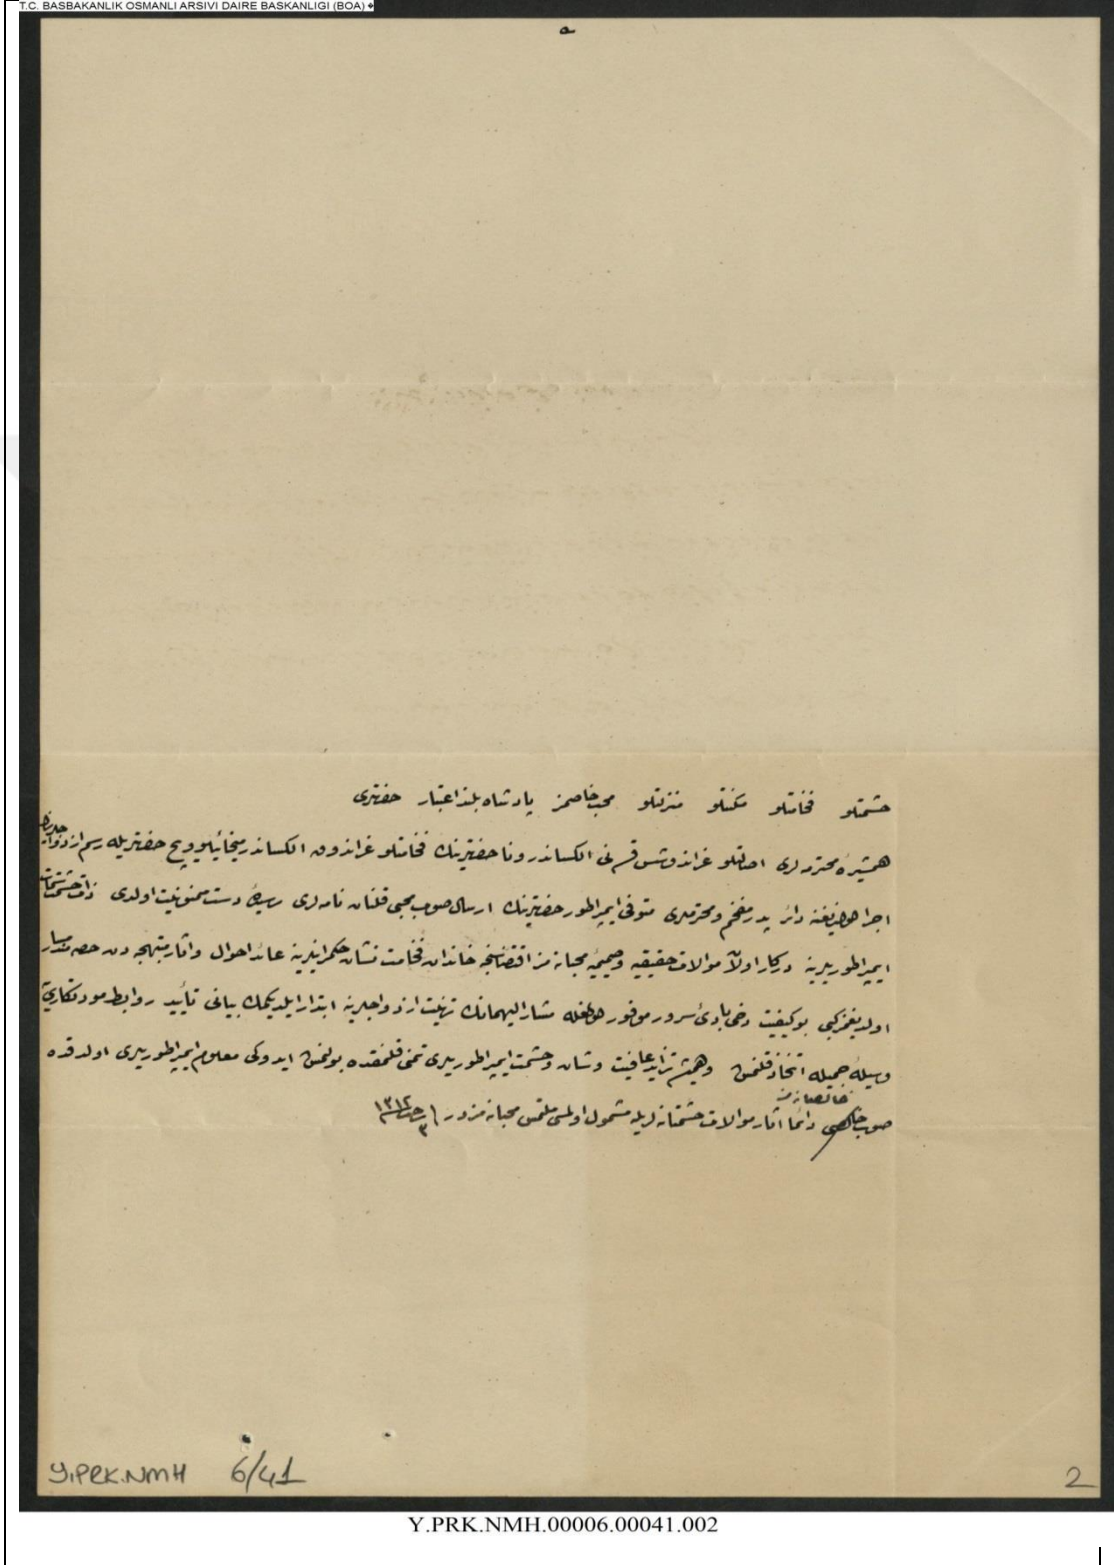 T.C. BASBAKANLIK OSMANLI ARSIVI DAIRE BASKANLIGI (BOA)
حشمتلو فخامتلو مكنتلو منزلتلو محب خاصمز پادشاه بلند اعتبار حضرتلرى
همشيرهٔ محترمه لرى اصالتلو غراندوشس قسنى الكساندرونا حضرتلرينك فخامتلو غراندوق الكساندر ميخائيلوويچ حضرتلريله رسم ازدواجلرى
اجرا دائر پدر مفخم ومحترملرى متوفى ايمپراطور حضرتلرينك ارسال صوب محبى قلنان نامه لرى دست ممنونيت اولدى ذات حشمتسمات
ايمپراطوريلرينه دركار اولان موالات حقيقيه وصميميهٔ محبانه مز اقتضاسنجه خاندان فخامت نشان حكمرانيلرينه عائد احوال وآثار مبتهجه دن حصه مند مسار
اولديغمز كبى بو كيفيت دخى بادئ سرور موفور اولمغله مشار اليهمانك تهنيت ازدواجلرينه ابتدار ايلديكمك بيانى تأييد روابط مودتكارى يه
وسيلهٔ جميله اتخاذ قلنمش وهميشه تزايد عافيت وشان وحشمت ايمپراطوريلرى تمنى قلنمقده بولنمش ايدوكى معلوم ايمپراطوريلرى اولدقده
خالصانه مز
صوب دائما آثار موالات حشمتانه لريله مشمول اولمسى ملتمس محبانه مزدر ١٣١٢
Y.PRK.NMH 6/41
2
Y.PRK.NMH.00006.00041.002